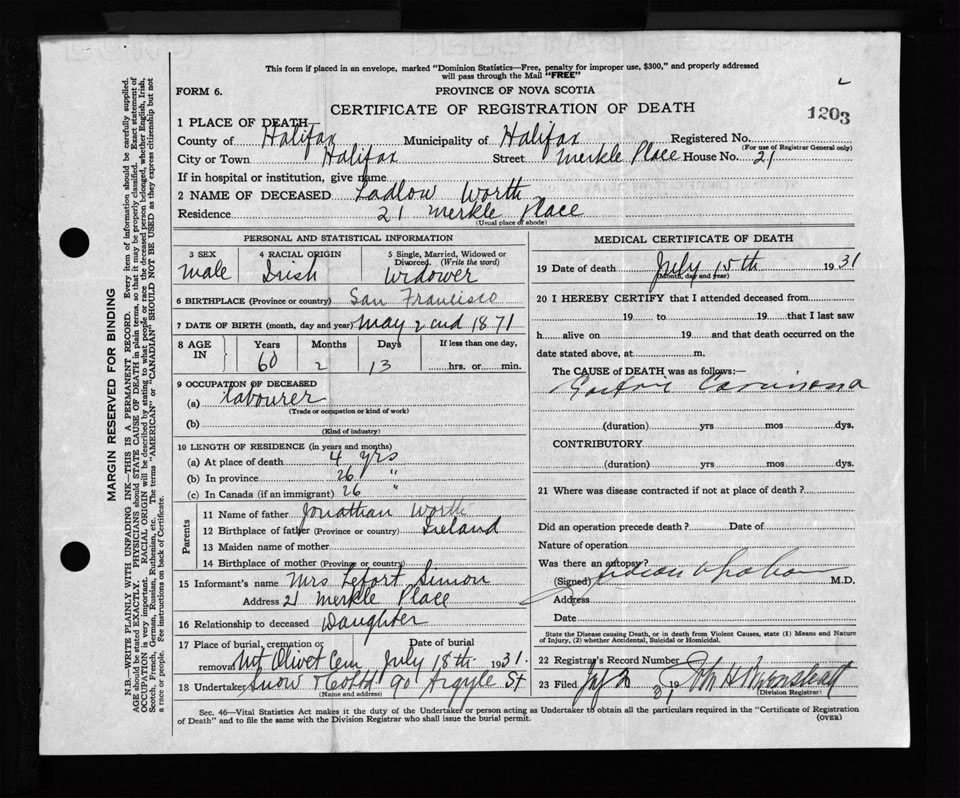 This form if placed in an envelope, marked "Dominion Statistics—Free, penalty for improper use, $300," and properly addressed
will pass through the Mail "FREE"
FORM 6.
PROVINCE OF NOVA SCOTIA
CERTIFICATE OF REGISTRATION OF DEATH
1203
1 PLACE OF DEATH
County of Halifax Municipality of Halifax Registered No.
(For use of Registrar General only)
City or Town Halifax Street Merkle Place House No. 21
If in hospital or institution, give name
2 NAME OF DECEASED Ladlow Worth
Residence 21 Merkle Place
(Usual place of abode)
PERSONAL AND STATISTICAL INFORMATION
3 SEX 4 RACIAL ORIGIN 5 Single, Married, Widowed or
Divorced. (Write the word)
Male Irish Widower
6 BIRTHPLACE (Province or country) San Francisco
7 DATE OF BIRTH (month, day and year) May 2cnd 1871
8 AGE IN Years Months Days If less than one day,
60 2 13 hrs. or min.
9 OCCUPATION OF DECEASED
(a) Labourer
(Trade or occupation or kind of work)
(b)
(Kind of industry)
10 LENGTH OF RESIDENCE (in years and months)
(a) At place of death 4 yrs
(b) In province 26 "
(c) In Canada (if an immigrant) 26 "
Parents
11 Name of father Jonathan Worth
12 Birthplace of father (Province or country) Ireland
13 Maiden name of mother
14 Birthplace of mother (Province or country)
15 Informant's name Mrs Lefort Simon
Address 21 Merkle Place
16 Relationship to deceased Daughter
17 Place of burial, cremation or Date of burial
removal Mt Olivet Cem July 18th 1931.
18 Undertaker Snow & Co Ltd 90 Argyle St
(Name and address)
MEDICAL CERTIFICATE OF DEATH
19 Date of death July 15th 1931
(Month, day and year)
20 I HEREBY CERTIFY that I attended deceased from
19 to 19 that I last saw
h alive on 19 and that death occurred on the
date stated above, at m.
The CAUSE of DEATH was as follows:—
(duration) yrs mos dys.
CONTRIBUTORY
(duration) yrs mos dys.
21 Where was disease contracted if not at place of death?
Did an operation precede death? Date of
Nature of operation
Was there an autopsy?
(Signed) M.D.
Address
Date
State the Disease causing Death, or in death from Violent Causes, state (1) Means and Nature
of Injury, (2) whether Accidental, Suicidal or Homicidal.
22 Registrar's Record Number
23 Filed 1931 John H
(Division Registrar)
Sec. 46—Vital Statistics Act makes it the duty of the Undertaker or person acting as Undertaker to obtain all the particulars required in the "Certificate of Registration
of Death" and to file the same with the Division Registrar who shall issue the burial permit.
(OVER)
MARGIN RESERVED FOR BINDING
N.B.—WRITE PLAINLY WITH UNFADING INK—THIS IS A PERMANENT RECORD. Every item of information should be carefully supplied.
AGE should be stated EXACTLY. PHYSICIANS should STATE CAUSE OF DEATH in plain terms, so that it may be properly classified. Exact statement of
OCCUPATION is very important. RACIAL ORIGIN will be described by stating to what people or race the deceased person belonged, whether English, Irish,
Scotch, French, German, Russian, Ruthenian, etc. The terms "AMERICAN" or "CANADIAN" SHOULD NOT BE USED as they express citizenship but not
a race or people. See instructions on back of Certificate.